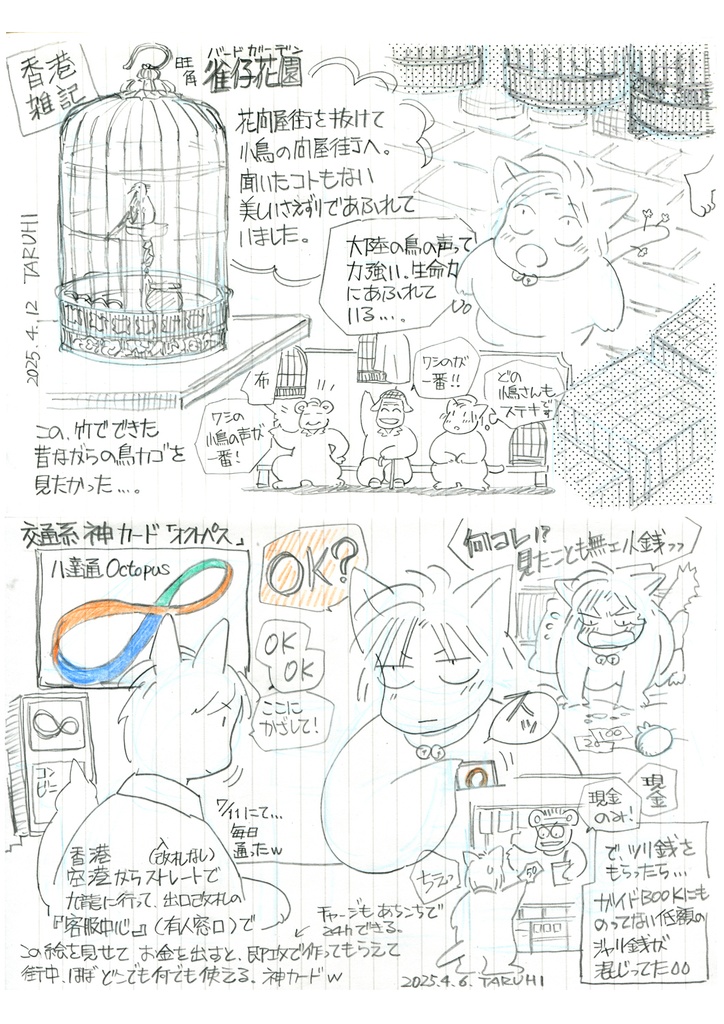 香港
雑記
バードガーデン
旺角 雀仔花園
花問屋街を抜けて
小鳥の問屋街へ。
聞いたコトもない
美しいさえずりであふれて
いました。
大陸の鳥の声って
力強い。生命力
にあふれて
いる…。
2025.4.12 TARUHI
布
ワシの
小鳥の声が
一番!
ワシのが
一番!!
どの
小鳥さんも
ステキです
この、竹でできた
昔ながらの鳥カゴを
見たかった…。
交通系 神カード「オクトパス」
八達通 Octopus
OK?
OK
OK
ここに
かざして!
スッ
何コレ!?
見たことも無エ小銭ッッ
100
20
コンビー
7/11にて…
毎日
通ったw
現金
現金
のみ!
50
ちえっ…
で、ツリ銭を
もらったら…
ガイドBOOKにも
のってない低額の
ジャリ銭が
混じってた
香港 (改札ない)
空港からストレートで
九龍に行って、出口改札の
『客服中心』(有人窓口)で
この絵を見せて お金を出すと、即攻で作ってもらえて
街中、ほぼどこでも何でも使える、神カードw
チャージもあちこちで
24hできる。
2025.4.6. TARUHI